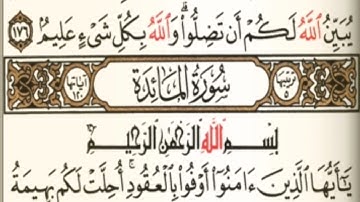 يُبَيِّنُ ٱللَّهُ لَكُمْ أَن تَضِلُّوا۟ ۗ وَٱللَّهُ بِكُلِّ شَىْءٍ عَلِيمٌۢ ١٧٦
ترتيبها ٥ سُورَةُ المَائِدَةِ آياتها ١٢٠
بِسْمِ ٱللَّهِ ٱلرَّحْمَٰنِ ٱلرَّحِيمِ
يَٰٓأَيُّهَا ٱلَّذِينَ ءَامَنُوٓا۟ أَوْفُوا۟ بِٱلْعُقُودِ ۚ أُحِلَّتْ لَكُم بَهِيمَةُ